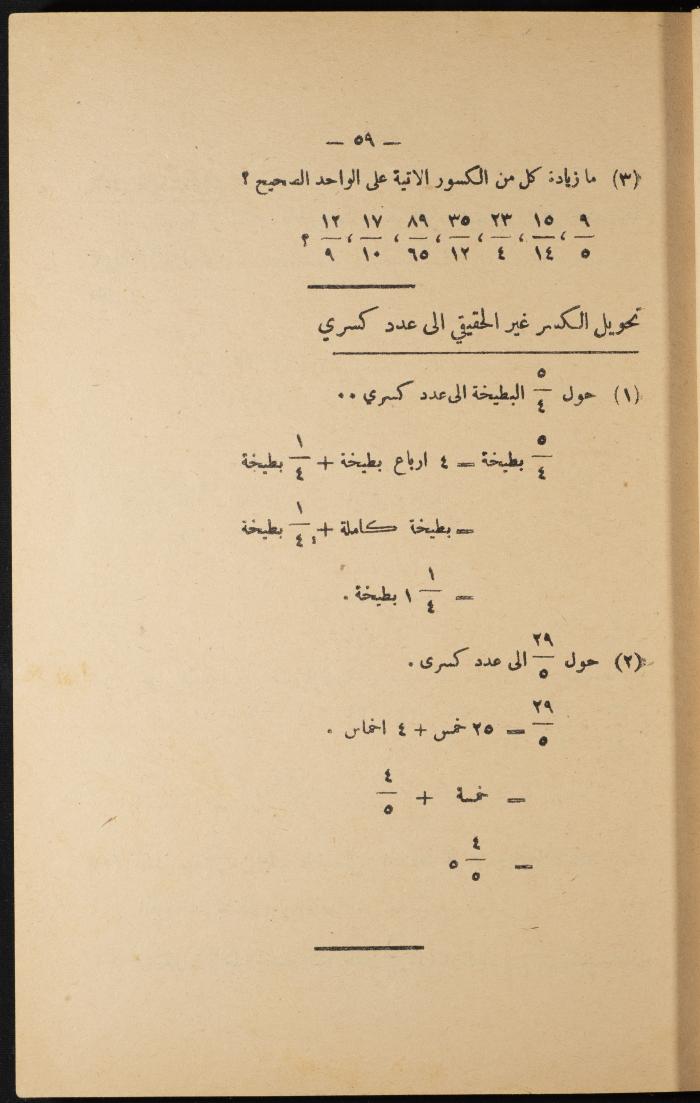 — ٥٩ —
(٣) ما زيادة كل من الكسور الاتية على الواحد الصحيح ؟
٩/٥ ، ١٥/١٤ ، ٢٣/٤ ، ٣٥/١٢ ، ٨٩/٦٥ ، ١٧/١٠ ، ١٢/٩ ؟
تحويل الكسر غير الحقيقي الى عدد كسري
(١) حول ٥/٤ البطيخة الى عدد كسري ..
٥/٤ بطيخة = ٤ ارباع بطيخة + ١/٤ بطيخة
= بطيخة كاملة + ١/٤ بطيخة
= ١ ١/٤ بطيخة .
(٢) حول ٢٩/٥ الى عدد كسرى .
٢٩/٥ = ٢٥ خمس + ٤ اخماس .
= خمسة + ٤/٥
= ٥ ٤/٥